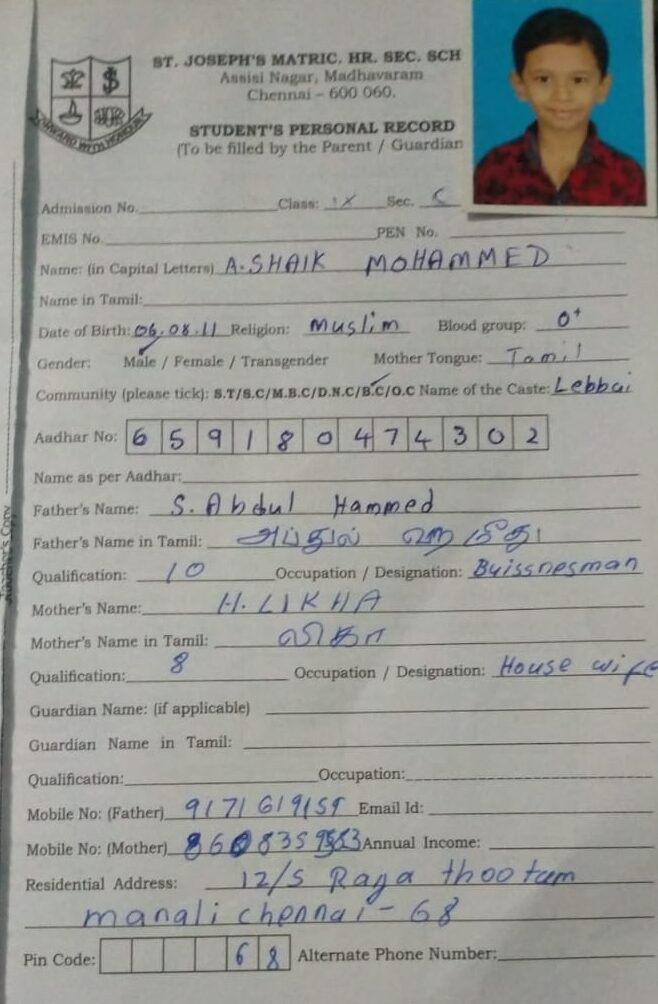 ST. JOSEPH'S MATRIC. HR. SEC. SCH
Assisi Nagar, Madhavaram
Chennai – 600 060.
STUDENT'S PERSONAL RECORD
(To be filled by the Parent / Guardian
Admission No. Class: IX Sec. C
EMIS No. PEN No.
Name: (in Capital Letters) A.SHAIK MOHAMMED
Name in Tamil:
Date of Birth: 06.08.11 Religion: Muslim Blood group: O+
Gender: Male / Female / Transgender Mother Tongue: Tamil
Community (please tick): S.T/S.C/M.B.C/D.N.C/B.C/O.C Name of the Caste: Lebbai
Aadhar No: 6 5 9 1 8 0 4 7 4 3 0 2
Name as per Aadhar:
Father's Name: S. Abdul Hammed
Father's Name in Tamil: அப்துல் ஹமீது
Qualification: 10 Occupation / Designation: Buissnesman
Mother's Name: H. LIKHA
Mother's Name in Tamil: லிகா
Qualification: 8 Occupation / Designation: House wife
Guardian Name: (if applicable)
Guardian Name in Tamil:
Qualification: Occupation:
Mobile No: (Father) 9171619159 Email Id:
Mobile No: (Mother) Annual Income:
Residential Address: 12/5 Raja thootam
manali chennai - 68
Pin Code: 6 8 Alternate Phone Number: